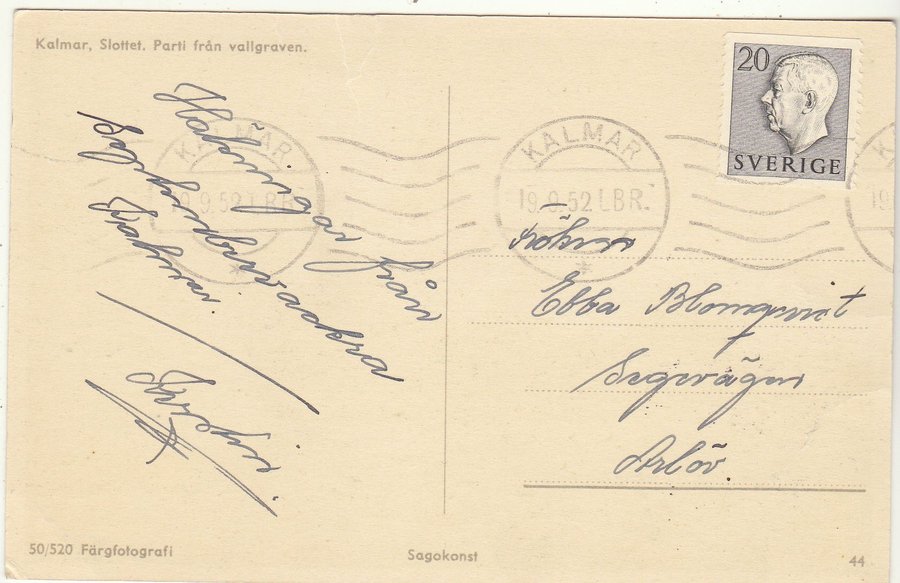 Kalmar, Slottet. Parti från vallgraven.
20
SVERIGE
KALMAR
19.9.52.LBR.
KALMAR
19.9.52.LBR.
Hälsningar från
Fröken
Ebba Blomqvist
Segevägen
Arlöv
50/520 Färgfotografi
Sagokonst
44